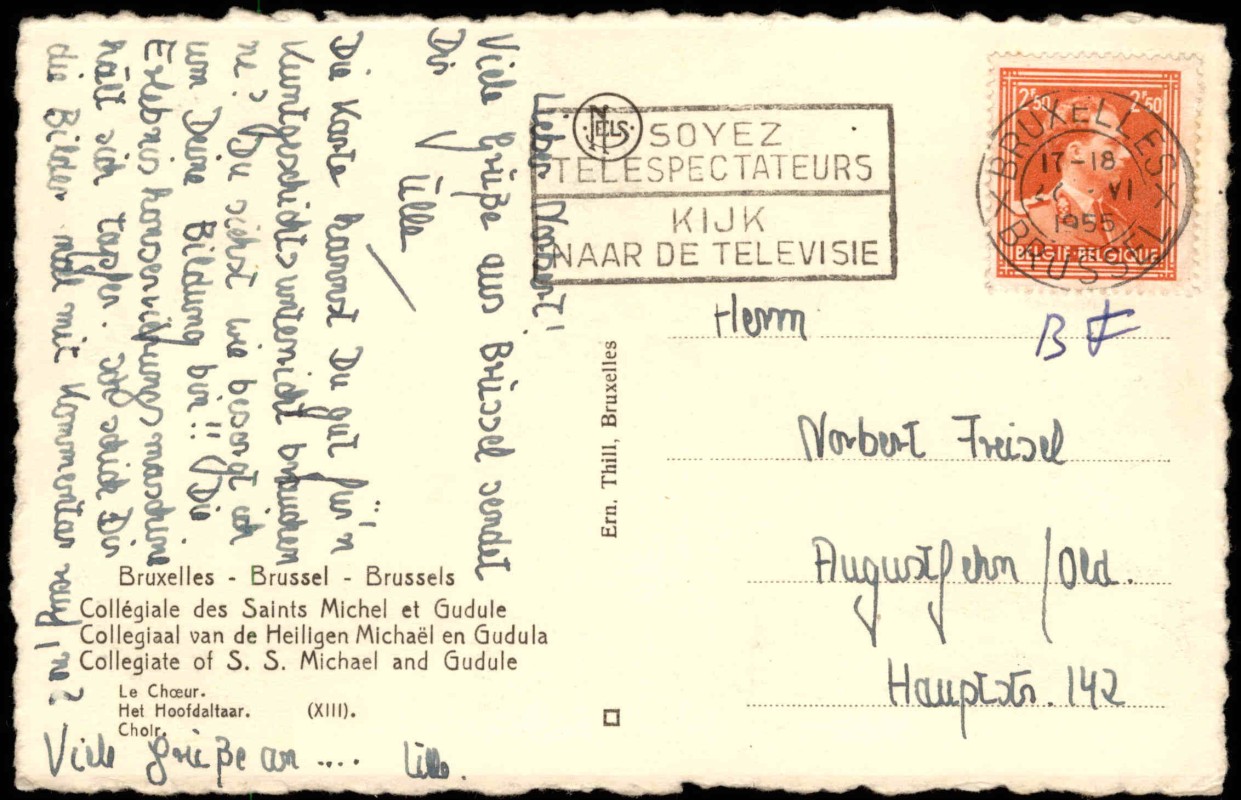 Lieber Norbert!
Viele Grüße aus Brüssel sendet
Dir Ulla
Die Karte kannst Du gut für'n
Kunstgeschichtsunterricht brauchen
ne? (Du siehst wie besorgt ich
um Deine Bildung bin!! (Die
Erlebniskonservierungsmaschine
hält sich tapfer. Ich schick Dir
die Bilder mal mit Kommentar rauf, ne?
Viele Grüße an .... Ulla.
Bruxelles - Brussel - Brussels
Collégiale des Saints Michel et Gudule
Collegiaal van de Heiligen Michaël en Gudula
Collegiate of S. S. Michael and Gudule
Le Chœur.
Het Hoofdaltaar. (XIII).
Choir.
Ern. Thill, Bruxelles
NELS
SOYEZ
TELESPECTATEURS
KIJK
NAAR DE TELEVISIE
2F50 2F50
BELGIE-BELGIQUE
BRUXELLES X
17-18
VI
1955
X BRUSSEL
Herrn
B F
Norbert Freisel
Augustfehn / Old.
Hauptstr. 142